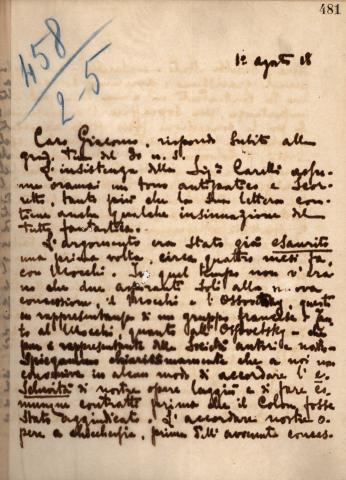 481
458
2-5
1º agosto 18
Caro Giacomo, rispondo subito alla
grad. tua del 30 u. s.
L'insistenza della Sig.ra Carelli assu-
me oramai un tono antipatico e scor-
retto, tanto più che la sua lettera con-
tiene anche qualche insinuazione del
tutto fantastica.
L'argomento era stato già esaurito
una prima volta, circa quattro mesi fa,
con Mocchi. In quel tempo non v'era-
no che due aspiranti soli alla nuova
concessione, il Mocchi e l'
in rappresentanza di un gruppo francese. Tan-
to al Mocchi, quanto all' che
pure è rappresentante della Società
spiegammo chiarissimamente che a noi non
conveniva in alcun modo di accordare l'e-
sclusività di nostre opere laggiù e di fare co-
munque contratti prima che il Colon fosse
stato aggiudicato. L'accordare nostre o-
pere a chicchessia, prima dell'avvenuta conces-